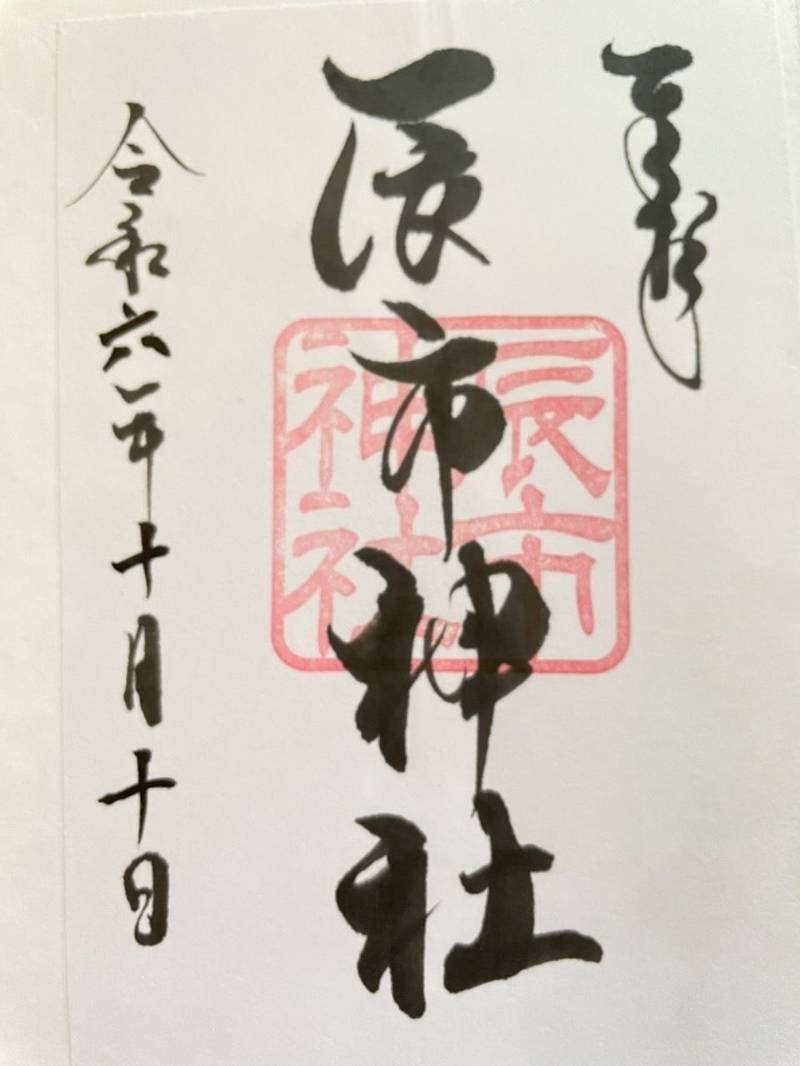 奉拝
辰市神社
辰市
神社
令和六年十月十日